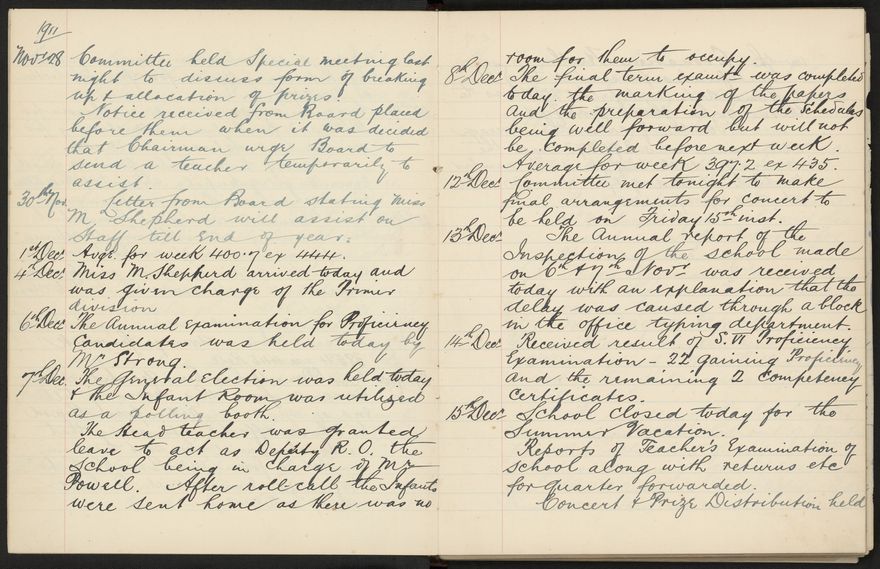 1911
Novr 28 Committee held Special meeting last
night to discuss form of breaking
up & allocation of prizes.
Notice received from Board placed
before them when it was decided
that Chairman urge Board to
send a teacher temporarily to
assist.
30th Nov. Letter from Board stating Miss
M Shepherd will assist on
Staff till End of year.
1st Decr Avge. for week 400.7 ex 444.
4th Decr Miss M. Shepherd arrived today and
was given charge of the Primer
division
6th Decr The Annual Examination for Proficiency
Candidates was held today by
Mr Strong
7th Dec. The General Election was held today
& the Infant Room was utilized
as a polling booth.
The Head teacher was granted
leave to act as Deputy R. O. the
School being in charge of Mr
Powell. After roll call the Infants
were sent home as there was no
room for them to occupy.
8th Decr The final term examtn was completed
today. the marking of the papers
and the preparation of the Schedules
being well forward but will not
be completed before next week.
Average for week 397.2 ex 435.
12th Decr Committee met tonight to make
final arrangements for concert to
be held on Friday 15th inst.
13th Decr The Annual report of the
Inspection of the school made
on 6th & 7th Novr was received
today with an explanation that the
delay was caused through a block
in the office typing department.
14th Decr Received result of S. VI Proficiency
Examination - 22 gaining Proficiency
and the remaining 2 Competency
certificates.
15th Decr School closed today for the
Summer Vacation.
Reports of Teacher's Examination of
school along with returns etc
for quarter forwarded.
Concert & Prize Distribution held